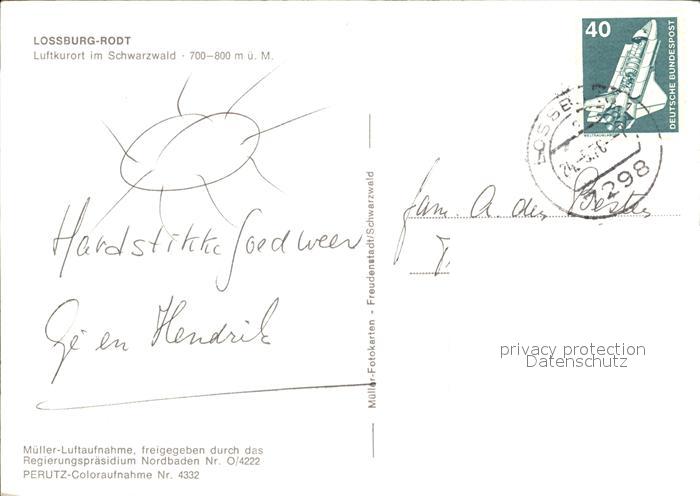 LOSSBURG-RODT
Luftkurort im Schwarzwald · 700–800 m ü. M.
40
DEUTSCHE BUNDESPOST
WELTRAUMLABOR
LOSSBURG
7298
Hardstikke Goed weer
Gé en Hendrik
fam. A. den Besten
Müller-Fotokarten - Freudenstadt/Schwarzwald
privacy protection
Datenschutz
Müller-Luftaufnahme, freigegeben durch das
Regierungspräsidium Nordbaden Nr. O/4222
PERUTZ-Coloraufnahme Nr. 4332